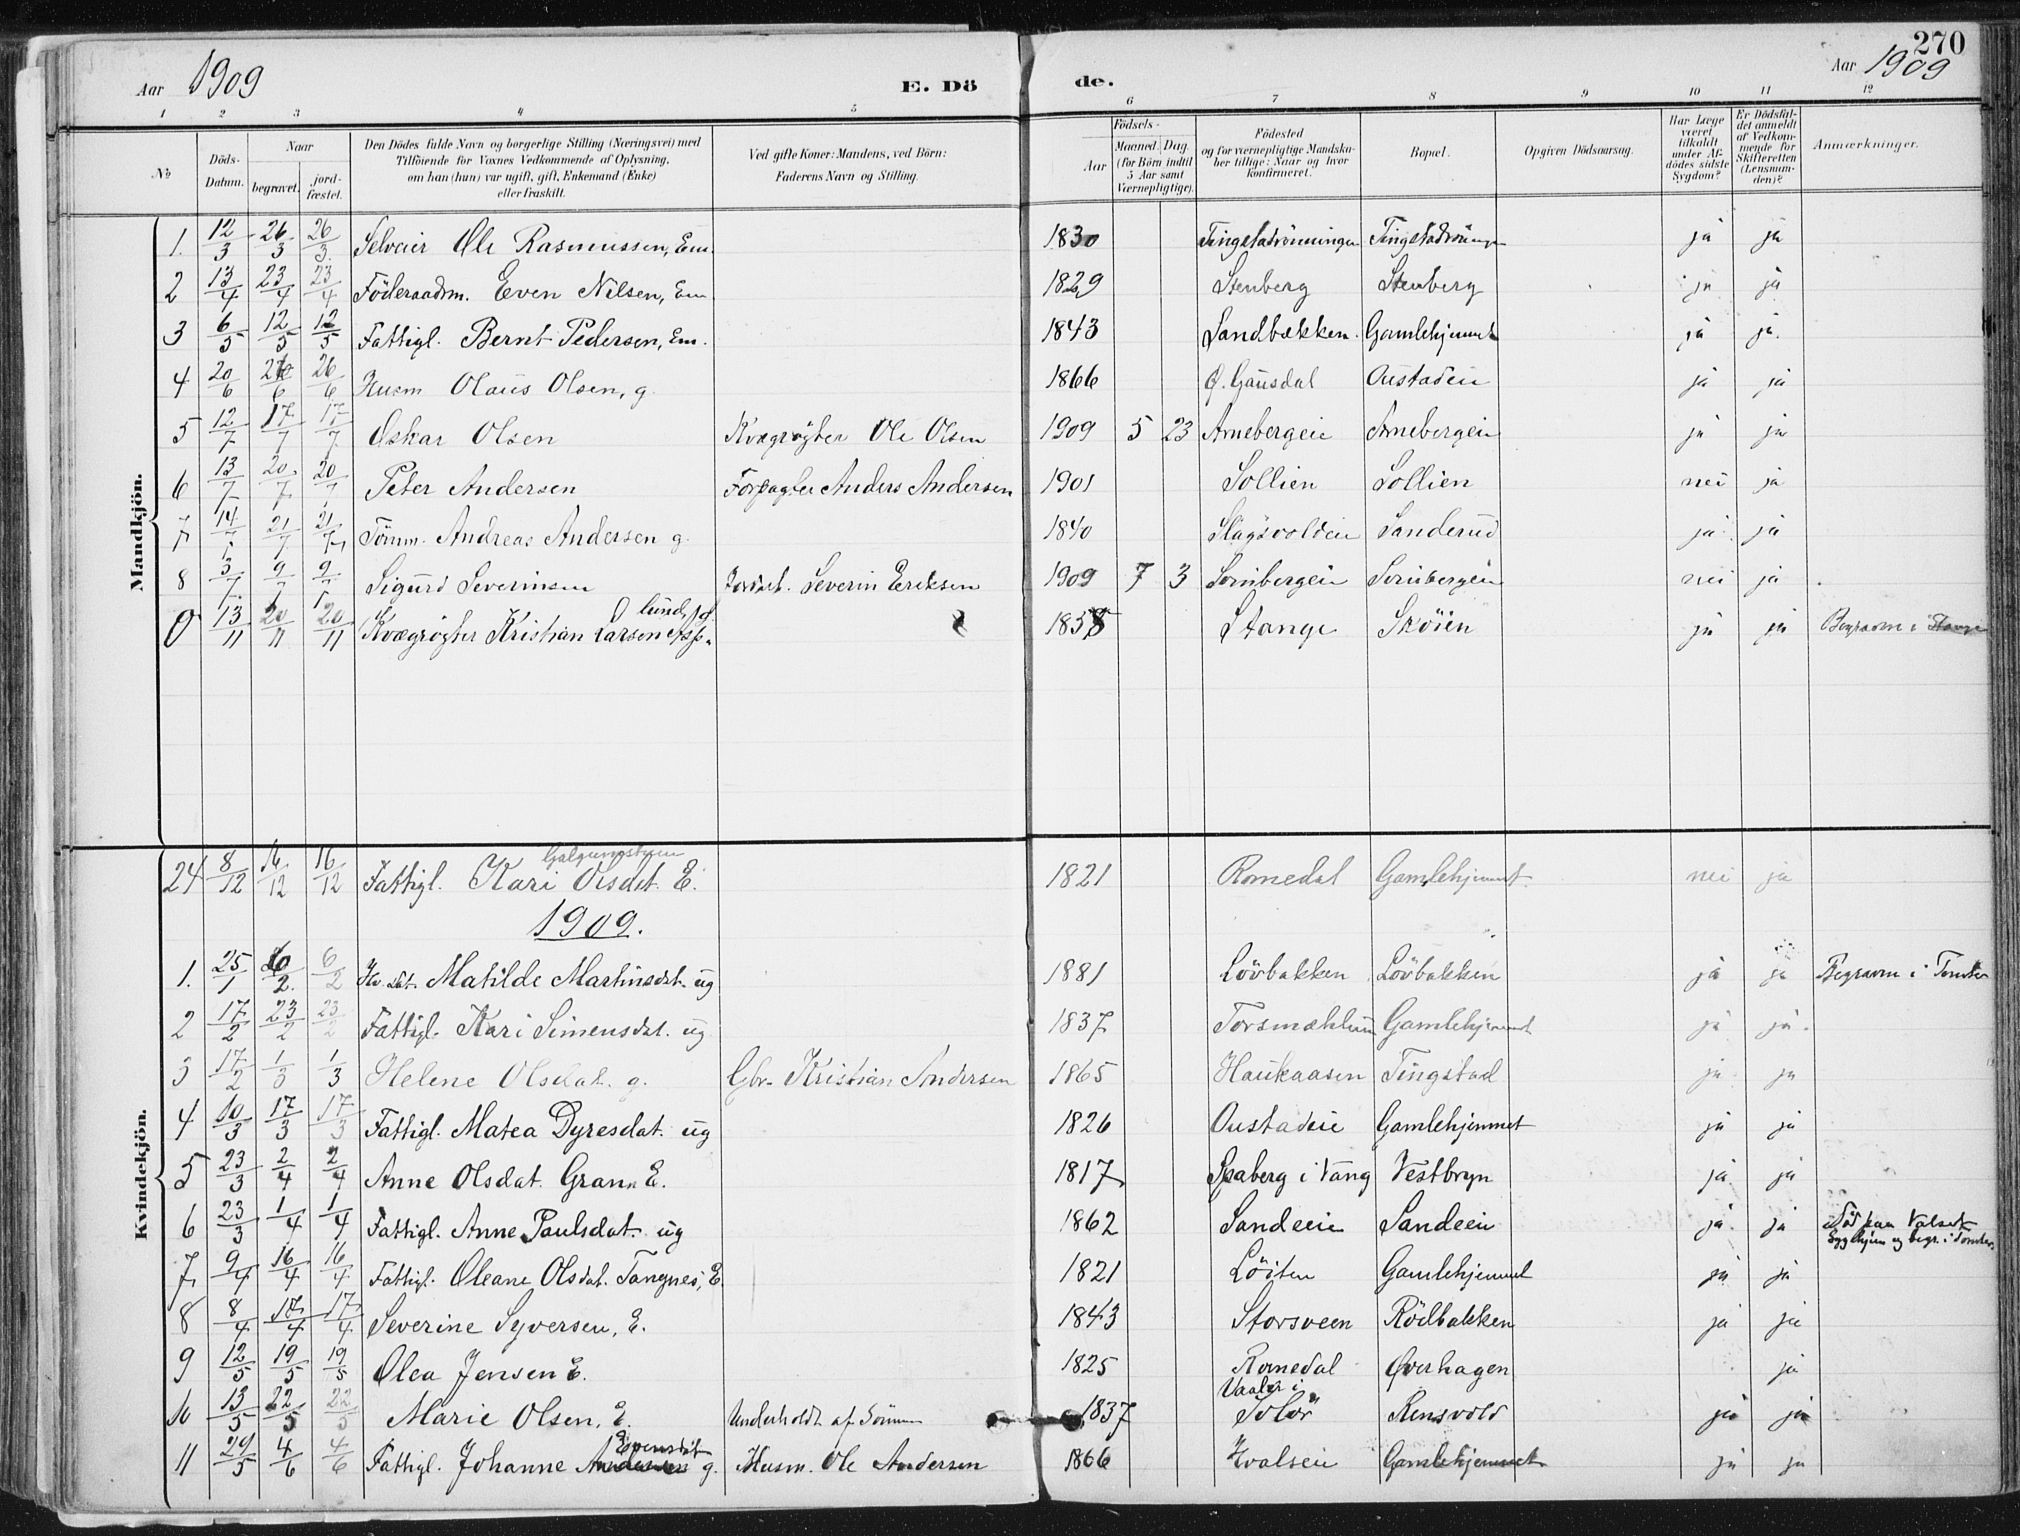 270
Aar 1909 E. Dö de. Aar 1909
1 2 3 4 5 6 7 8 9 10 11 12
№ Döds-Datum. Naar begravet. jord-fæstet. Den Dödes fulde Navn og borgerlige Stilling (Næringsvei) med Tilföiende for Voxnes Vedkommende af Oplysning, om han (hun) var ugift, gift, Enkemand (Enke) eller fraskilt. Ved gifte Koner: Mandens, ved Börn: Faderens Navn og Stilling. Födsels- Aar Maaned. Dag. (for Börn indtil 5 Aar samt Værnepligtige). Födested og for værnepligtige Mandskaber tillige: Naar og hvor konfirmeret. Bopæl. Opgiven Dödsaarsag. Har Læge været tilkaldt under Afdödes sidste Sygdom? Er Dödsfaldet anmeldt af Vedkommende for Skifteretten (Lensmanden)? Anmærkninger.
Mandkjön.
1. 12/3 26/3 26/3. Selveier Ole Rasmussen, Em. 1830 Tingstadrönningen ja ja
2 13/4 23/4 23/4 Föderaadsm. Even Nilsen, Em. 1829 Stenberg Stenberg ja ja
3 6/5 12/5 12/5 Fattigl. Bernt Pedersen, Em. 1843 Sandbækken Gamlehjemmet ja ja.
4 20/6 26/6 26/6 Husm Olaus Olsen, g. 1866 Ø. Gausdal Oustadeie ja ja
5 12/7 17/7 17/7 Oskar Olsen Kvægrögter Ole Olsen 1909 5 23 Arnebergeie Arnebergeie ja ja
6 13/7 20/7 20/7 Peter Andersen Forpagter Anders Andersen 1901 Sollien Sollien nei ja
7 14/7 21/7 21/7 Tömm. Andreas Andersen g. 1840 Slagsvoldeie Sanderud ja ja
8 3/7 9/7 9/7 Sigurd Severinsen Severin Eriksen 1909 7 3 nei ja
13/11 20/11 20/11 Kvægrögter Kristian Larsen 1858 Stange Sköien ja ja Begraven i Stange
Kvindekjön.
24 8/12 16/12 16/12 Fattigl. Kari Olsdat. E. 1821 Romedal Gamlehjemmet nei ja
1909.
1. 25/1 6/2 6/2 Matilde Martinsdat. ug 1881 Lövbakken Lövbakken ja ja Begraven i Tomter
2 17/2 23/2 23/2 Fattigl. Kari Simensdat. ug 1837 Gamlehjemmet ja ja.
3 17/2 1/3 1/3 Helene Olsdat. g. Gbr. Kristian Andersen 1865 Haukaasen Tingstad ja ja
4 10/3 17/3 17/3 Fattigl. Matea Dyresdat. ug 1826 Oustadeie Gamlehjemmet ja ja
5 23/3 2/4 2/4 Anne Olsdat. Gran E. 1817 Spaberg i Vang Vestbryn ja ja
6 23/3 1/4 1/4 Fattigl. Anne Paulsdat. ug 1862 Sandeeie Sandeeie ja ja Död paa Valset Sygehjem og begr. i Tomter
7 9/4 16/4 16/4 Fattigl. Oleane Olsdat. Tangnes, E. 1821 Löiten Gamlehjemmet ja ja
8 8/4 17/4 17/4 Severine Syversen, E. 1843 Storsveen Rödbakken ja ja
9 12/5 19/5 19/5 Olea Jensen E. 1825 Romedal Overhagen ja
10 13/5 22/5 22/5 Marie Olsen, E. Underholdt af Sönnen 1837 Vaaler i Solör Rensvold ja ja
11 29/5 4/6 4/6 Fattigl. Johanne Evensdat. g. Husm. Ole Andersen 1866 Hvalseie Gamlehjemmet ja ja